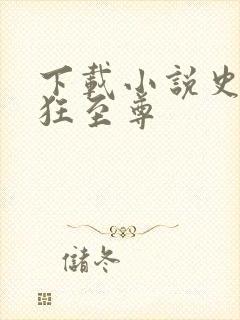 下載小說史
狂至尊
儲冬